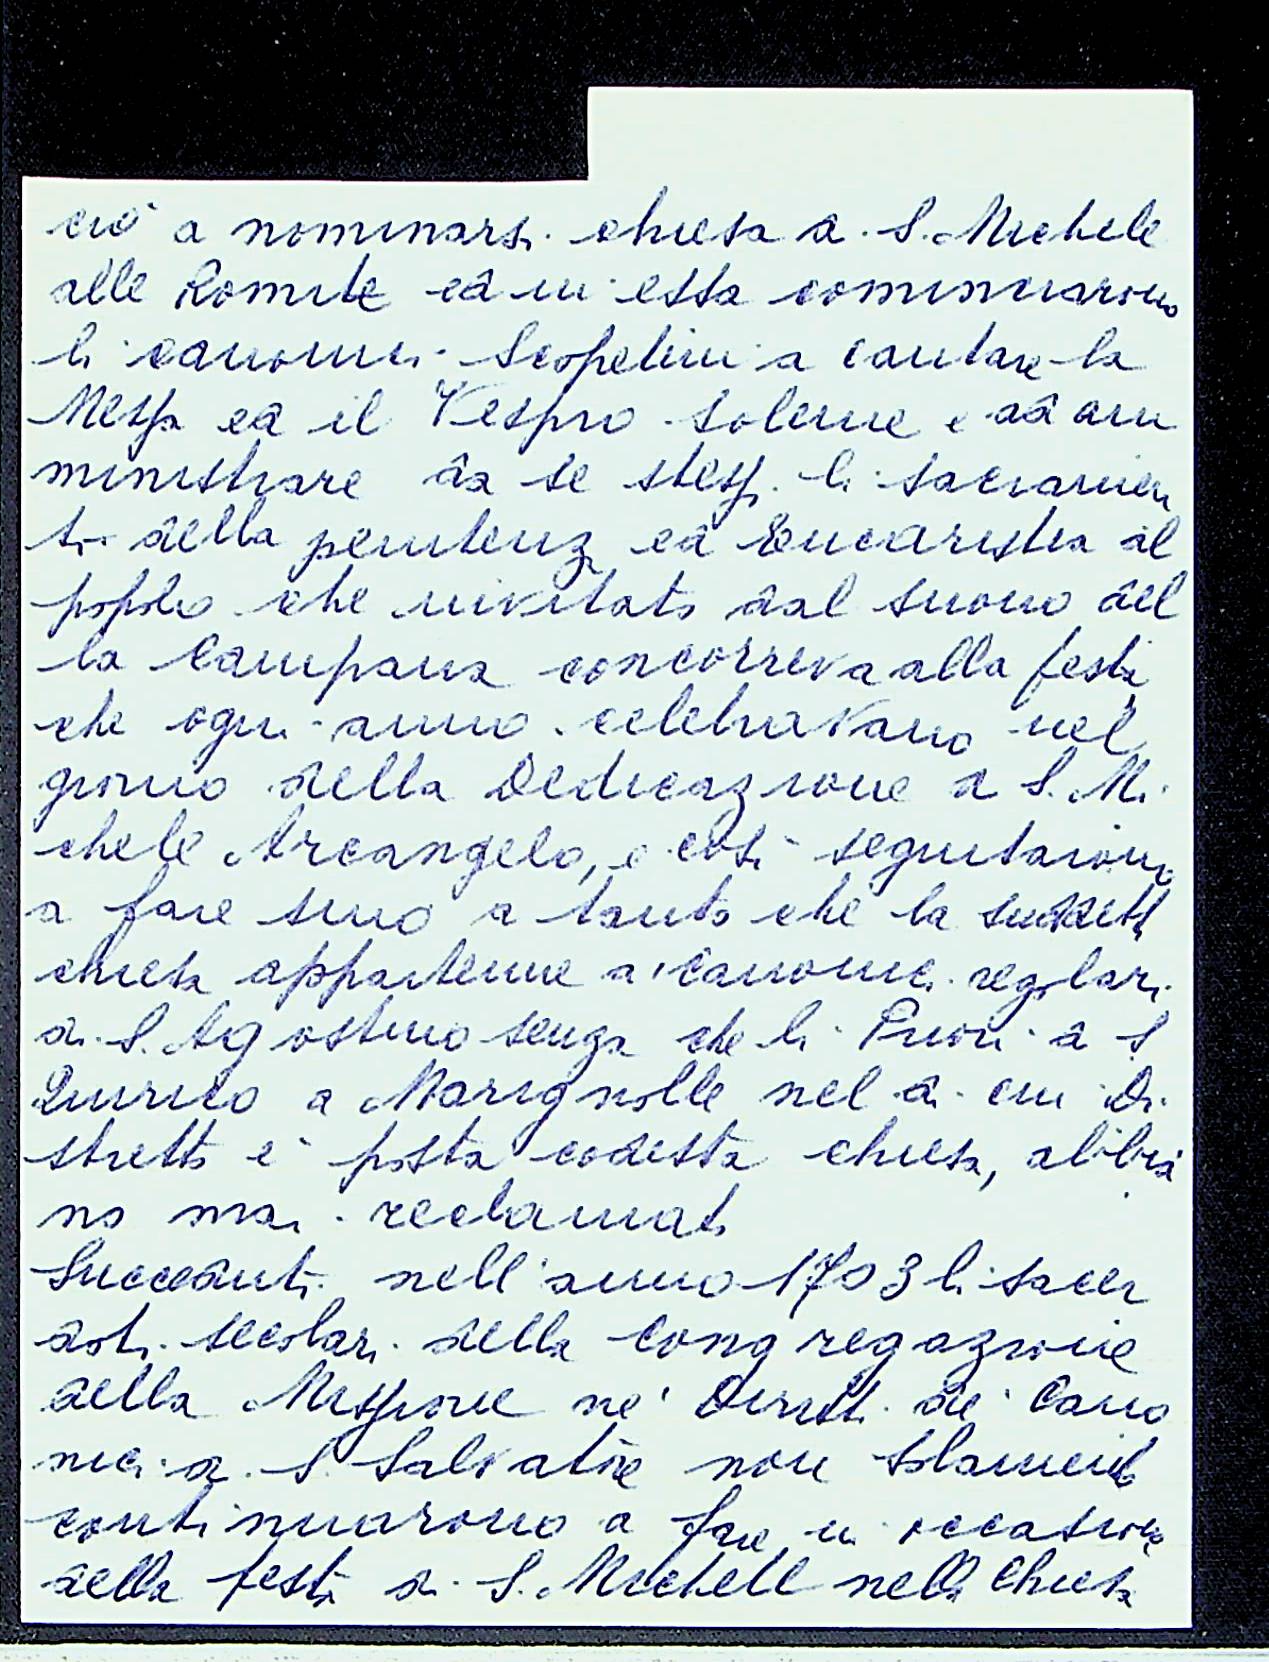 ciò a nominarsi chiesa di S. Michele
alle Romite ed in essa cominciarono
li canonici Scopetini a cantare la
Messa ed il Vespro solenne e ad am
ministrare da se stessi li sacramen
ti della penitenza ed Eucaristia al
popolo che invitato dal suono del
la Campana concorreva alla festa
che ogni anno celebravano nel
giorno della Dedicazione di S. Mi
chele Arcangelo, e così seguitarono
a fare sino a tanto che la suddetta
chiesa appartenne a' Canonici regolari
di S. Agostino senza che li Priori di S.
Quirico a Marignolle nel di cui Di
stretto è posta codesta chiesa, abbia
no mai reclamato
Succeduti nell'anno 1703 li sacer
doti secolari della Congregazione
della Missione ne' Diritti de' Cano
nici di S. Salvatore non solamente
continuarono a fare in occasione
della festa di S. Michele nella Chiesa